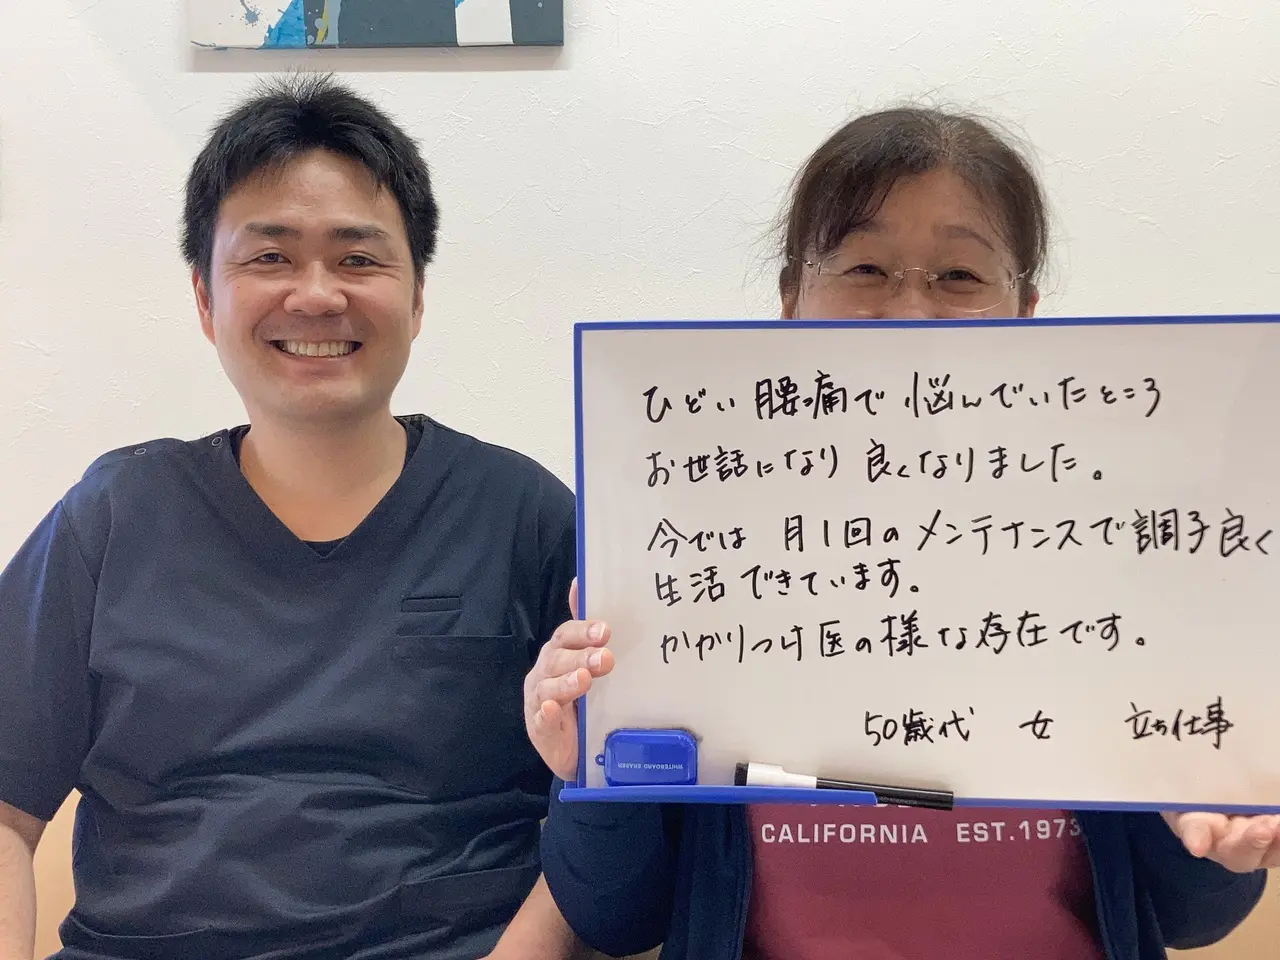 ひどい腰痛で悩んでいたところ
お世話になり良くなりました。
今では月1回のメンテナンスで調子良く
生活できています。
かかりつけ医の様な存在です。
50歳代 女 立ち仕事
WHITEBOARD ERASER
CALIFORNIA EST.1973